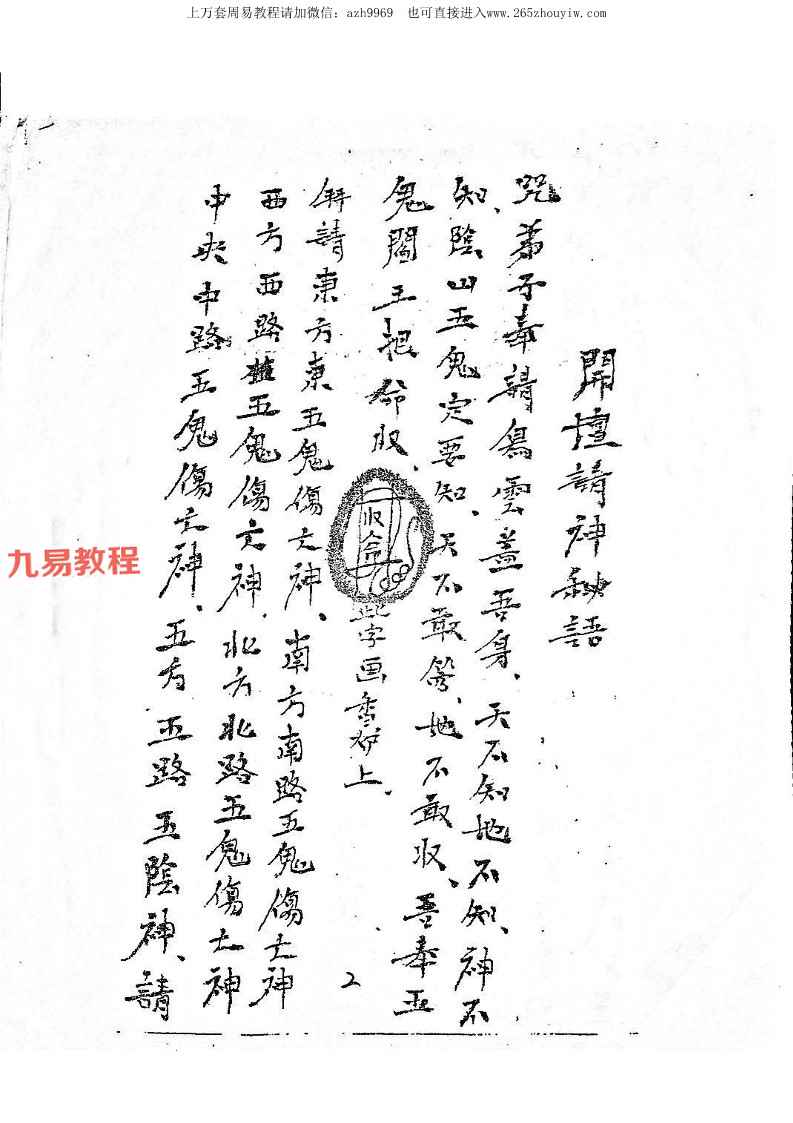 上万套周易教程请加微信：azh9969 也可直接进入www.265zhouyiw.com
開壇請神秘語
咒弟子奉請烏雲蓋吾身、天不知地不知、神不
知、陰山五鬼定要知、天不敢答、地不敢收、吾奉五
鬼閻王根命收、
收命
此字画香炉上、
請東方東五鬼傷亡神、南方南路五鬼傷亡神
西方西路五鬼傷亡神、北方北路五鬼傷亡神
中央中路五鬼傷亡神、五方五路五陰神、請
2
九易教程